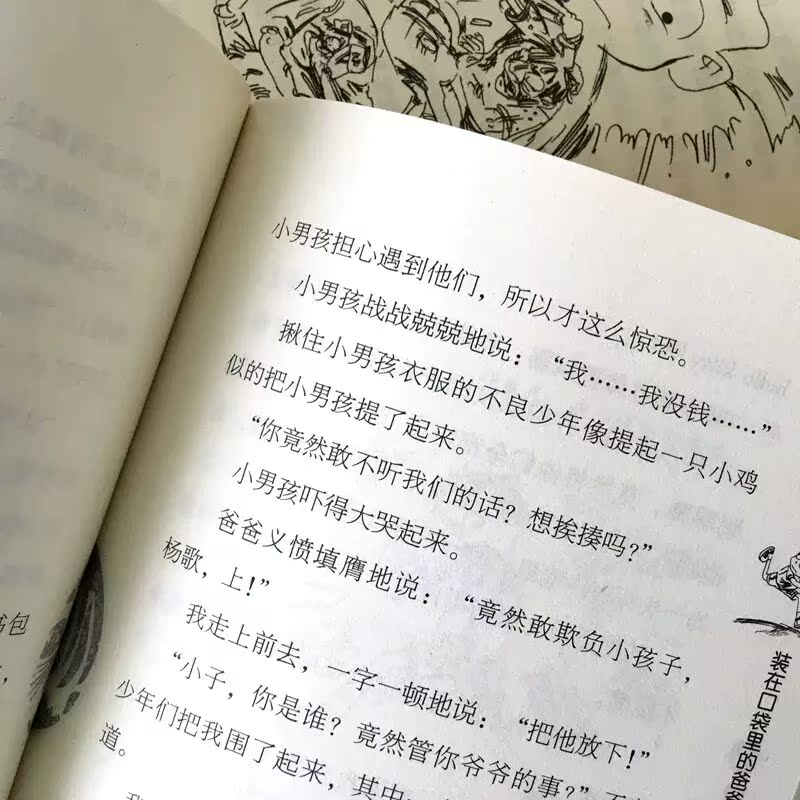 小男孩担心遇到他们，所以才这么惊恐。
小男孩战战兢兢地说：“我……我没钱……”
揪住小男孩衣服的不良少年像提起一只小鸡
似的把小男孩提了起来。
“你竟然敢不听我们的话？想挨揍吗？”
小男孩吓得大哭起来。
爸爸义愤填膺地说：“竟然敢欺负小孩子，
杨歌，上！”
我走上前去，一字一顿地说：“把他放下！”
“小子，你是谁？竟然管你爷爷的事？”不
少年们把我围了起来，其中
道。
书包
装在口袋里的爸爸